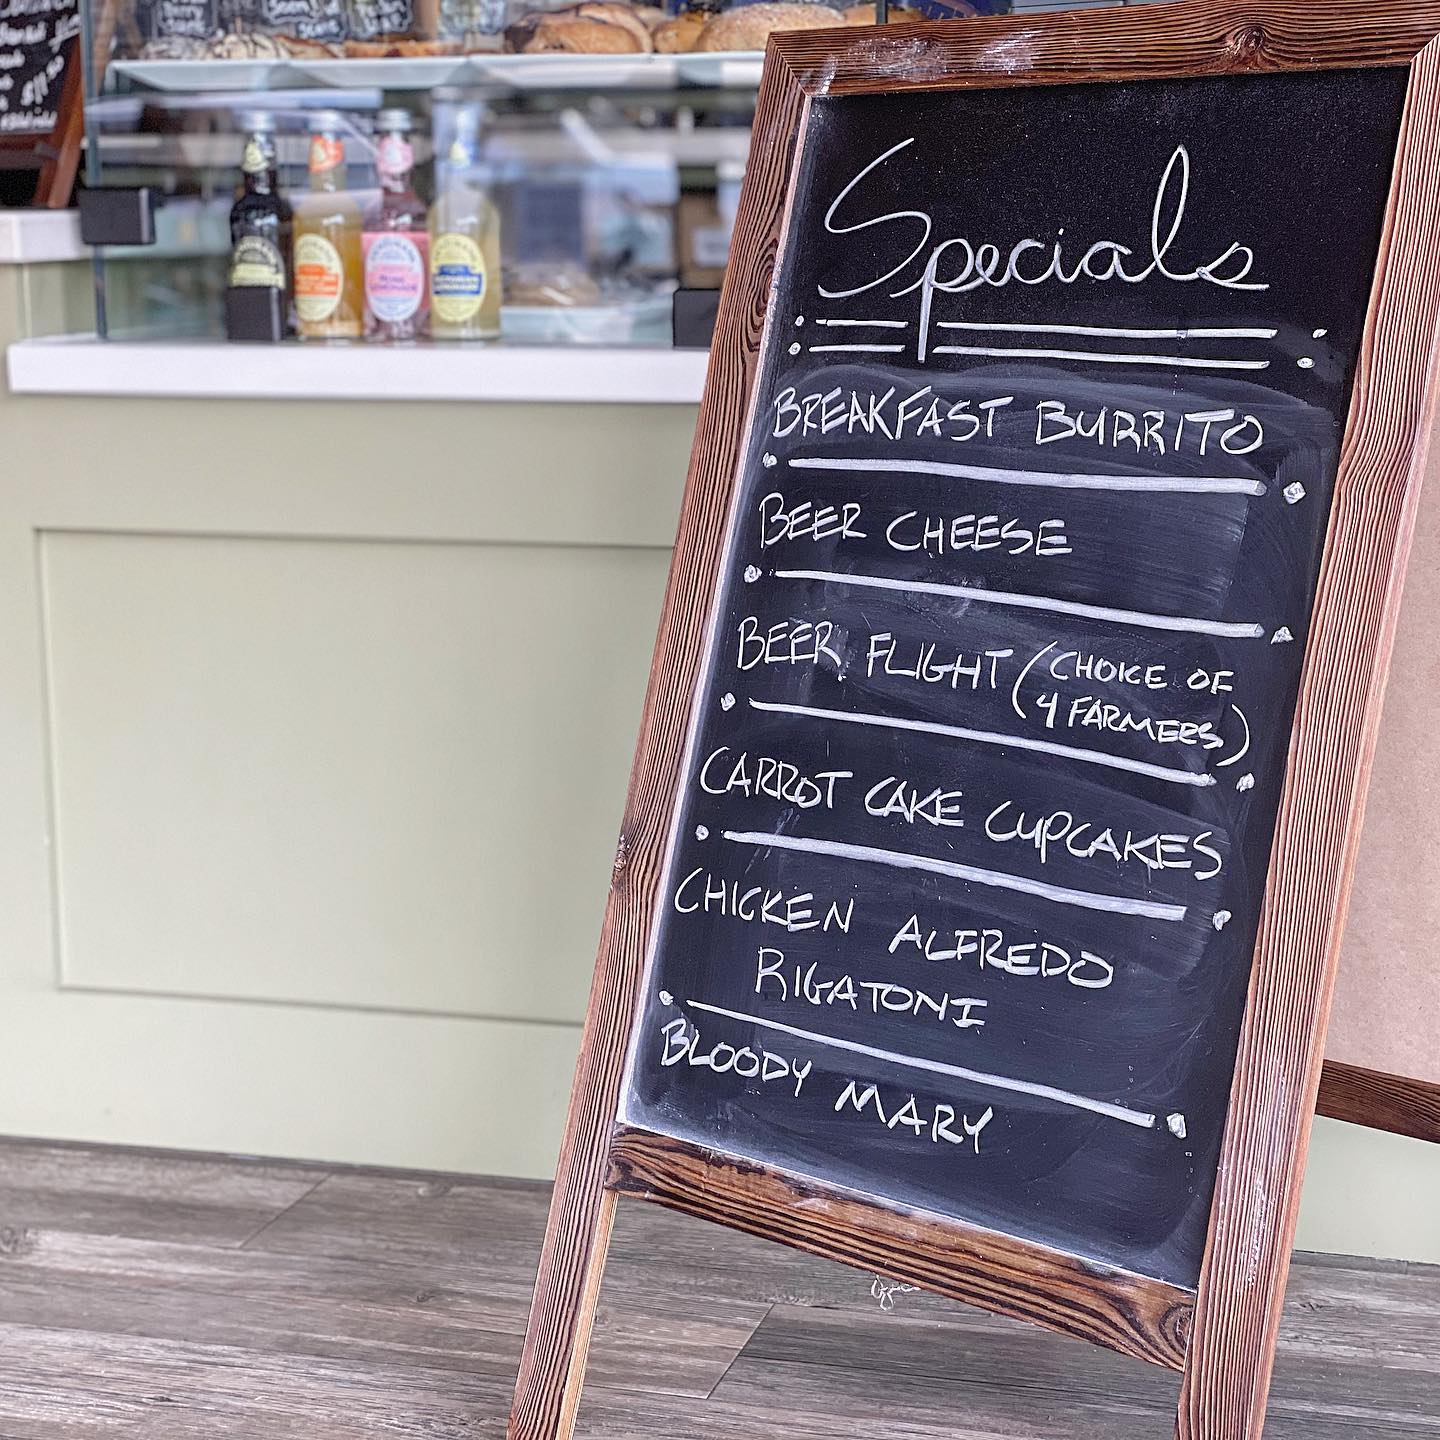 Specials
BREAKFAST BURRITO
BEER CHEESE
BEER FLIGHT (CHOICE OF
4 FARMERS)
CARROT CAKE CUPCAKES
CHICKEN ALFREDO
RIGATONI
BLOODY MARY
ROSE
LEMONADE